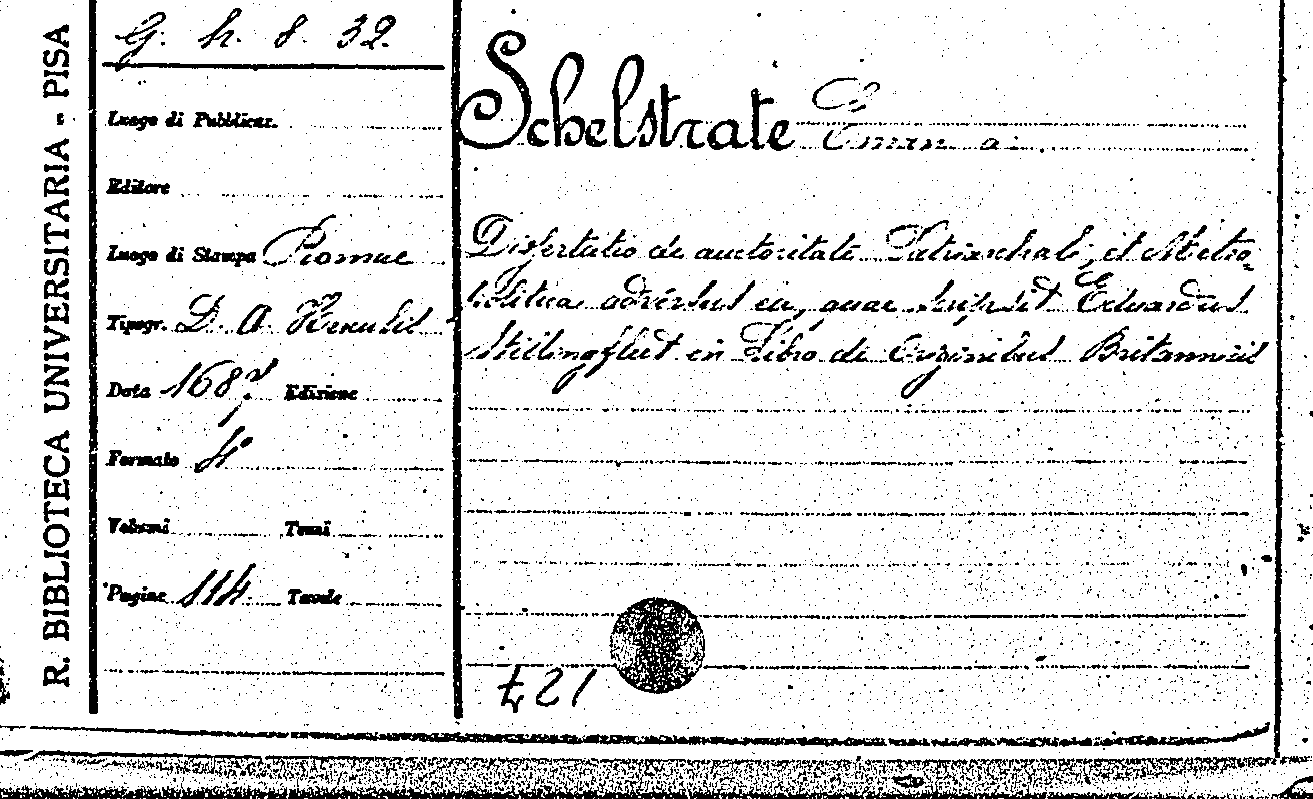 R. BIBLIOTECA UNIVERSITARIA - PISA
G. h. 8. 32.
Luogo di Pubblicaz.
Editore
Luogo di Stampa Romae
Tipogr. D. A. Herculis
Data 1687 Edizione
Formato 4°
Volumi Tomi
Pagine 114 Tavole
Schelstrate
Dissertatio de auctoritate Patriarchali, et Metro-
politica adversus ea, quae scripsit Eduardus
Stillingfleet in Libro de Originibus Britannicis